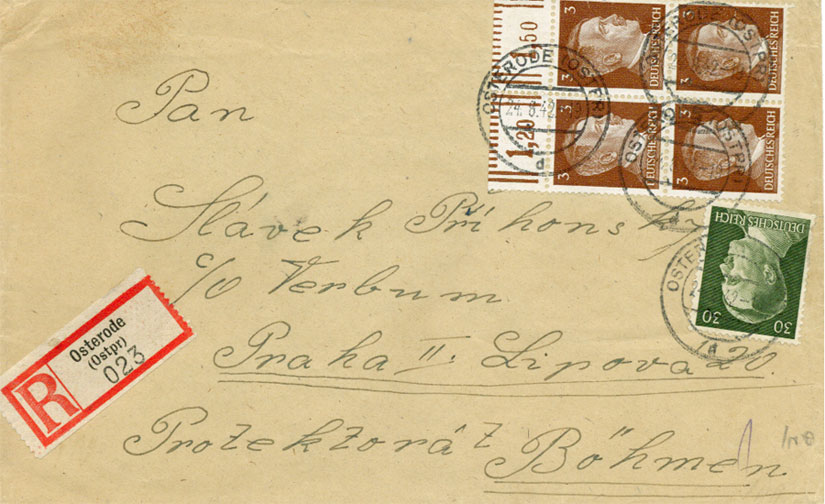 1,50
3 DEUTSCHES REICH
3 DEUTSCHES REICH
1,20
3 DEUTSCHES REICH
3 DEUTSCHES REICH
OSTERODE (OSTPR)
24.8.42
a
OSTERODE (OSTPR)
OSTPR)
Pan
Slávek Příhonský
c/o Verbum
Praha II. Lipová 20.
Protektorát Böhmen
R
Osterode
(Ostpr)
023
DEUTSCHES REICH
30 30
OSTER